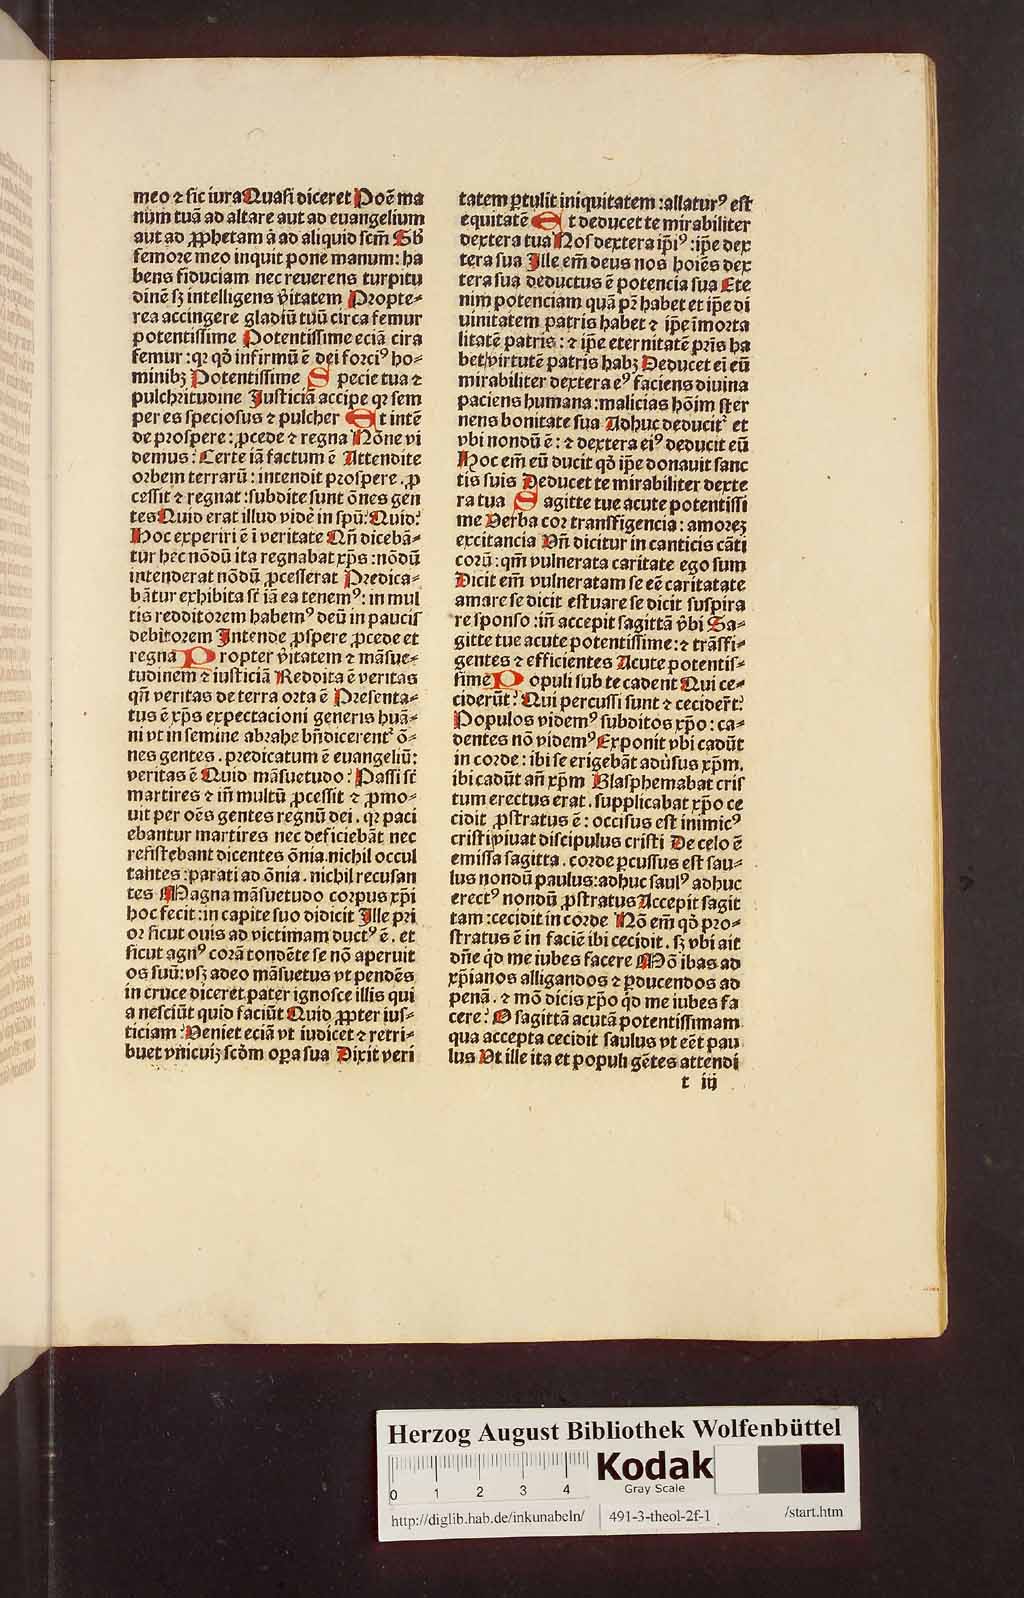 meo ⁊ sic iura Quasi diceret Poẽ ma
nũm tuã ad altare aut ad euangelium
aut ad ꝓphetam ã ad aliquid scm̃ Sb̃
femore meo inquit pone manum: ha
bens fiduciam nec reuerens turpitu
dinẽ sꝫ intelligens v̾itatem Propte⸗
rea accingere gladiũ tuũ circa femur
potentissime Potentissime eciã circa
femur: qꝛ qð infirmũ ẽ dei forciꝰ ho⸗
minibꝫ Potentissime Specie tua ⁊
pulchritudine Justiciã accipe qꝛ sem
per es speciosus ⁊ pulcher Et intẽ
de prospere: ꝓcede ⁊ regna Nõne vi
demus: Certe iã factum ẽ Attendite
orbem terrarũ: intendit prospere. ꝓ
cessit ⁊ regnat: subdite sunt õnes gen
tes Quid erat illud vidẽ in spũ? Quid?
Hoc experiri ẽ i veritate Qñ dicebã⸗
tur hec nõdũ ita regnabat xp̃s: nõdũ
intenderat nõdũ ꝓcesserat Predica⸗
bãtur exhibita st̃ iã ea tenemꝰ: in mul
tis redditorem habemꝰ deũ in paucis
debitorem Intende ꝓspere ꝓcede et
regna Propter v̾itatem ⁊ mãsue⸗
tudinem ⁊ iusticiã Reddita ẽ veritas
qñ veritas de terra orta ẽ Presenta⸗
tus ẽ xp̃s expectacioni generis huã⸗
ni vt in semine abrahe bñdicerentᷣ õ⸗
nes gentes. predicatum ẽ euangeliũ:
veritas ẽ Quid mãsuetudo? Passi st̃
martires ⁊ iñ multũ ꝓcessit ⁊ ꝓmo⸗
uit per oẽs gentes regnũ dei. qꝛ paci
ebantur martires nec deficiebãt nec
resistebant dicentes õnia. nichil occul
tantes: parati ad õnia. nichil recusan
tes Magna mãsuetudo corpus xp̃i
hoc fecit: in capite suo didicit Ille pri
or sicut ouis ad victimam ductꝰ ẽ. et
sicut agnꝰ corã tondẽte se nõ aperuit
os suũ: vsꝫ adeo mãsuetus vt pendẽs
in cruce diceret pater ignosce illis qui
a nesciũt quid faciũt Quid ꝓpter ius⸗
ticiam? Veniet eciã vt iudicet ⁊ retri⸗
buet vnicuiꝫ scðm oꝑa sua Dixit veri
tatem ꝑtulit iniquitatem: allaturꝰ est
equitatẽ Et deducet te mirabiliter
dextera tua Nos dextera ip̃iꝰ: ip̃e dex
tera sua Ille em̃ deus nos hoiẽs dex
tera sua deductus ẽ potencia sua Ete
nim potenciam quã pr̃ habet et ip̃e di
uinitatem patris habet ⁊ ip̃e ĩmorta
litatẽ patris: ⁊ ip̃e eternitatẽ pr̃is ha
bet/virtutẽ patris habꝫ Deducet ei eũ
mirabiliter dextera eꝰ faciens diuina
paciens humana: malicias hõim ster
nens bonitate sua Adhuc deducitᷣ et
vbi nondũ ẽ: ⁊ dextera eiꝰ deducit eũ
Hoc em̃ eũ ducit qð ip̃e donauit sanc
tis suis Deducet te mirabiliter dexte
ra tua Sagitte tue acute potentissi
me Verba cor transfigencia: amoreꝫ
excitancia Vñ dicitur in canticis cãti
corũ: qm̃ vulnerata caritate ego sum
Dicit em̃ vulneratam se eẽ caritatate
amare se dicit estuare se dicit suspira
re sponso: iñ accepit sagittã v̾bi Sa⸗
gitte tue acute potentissime: ⁊ trãsfi⸗
gentes ⁊ efficientes Acute potentis⸗
sime Populi sub te cadent Qui ce⸗
ciderũt? Qui percussi sunt ⁊ cecider̃t?
Populos videmꝰ subditos xp̃o: ca⸗
dentes nõ videmꝰ Exponit vbi cadũt
in corde: ibi se erigebãt adũsus xp̃m.
ibi cadũt añ xp̃m Blasphemabat cris
tum erectus erat. supplicabat xp̃o ce
cidit ꝓstratus ẽ: occisus est inimicꝰ
cristi viuat discipulus cristi De celo ẽ
emissa sagitta. corde ꝑcussus est sau⸗
lus nondũ paulus: adhuc saulꝰ adhuc
erectꝰ nondũ ꝓstratus Accepit sagit
tam: cecidit in corde Nõ em̃ qð pro⸗
stratus ẽ in faciẽ ibi cecidit. sꝫ vbi ait
dñe qd me iubes facere Mõ ibas ad
xp̃ianos alligandos ⁊ ꝑducendos ad
penã. ⁊ mõ dicis xp̃o qd me iubes fa
cere? O sagittã acutã potentissimam
qua accepta cecidit saulus vt eẽt pau
lus Vt ille ita et populi gẽtes attendi
t iij
Herzog August Bibliothek Wolfenbüttel
0 1 2 3 4
Kodak
Gray Scale
http://diglib.hab.de/inkunabeln/ 491-3-theol-2f-1 /start.htm